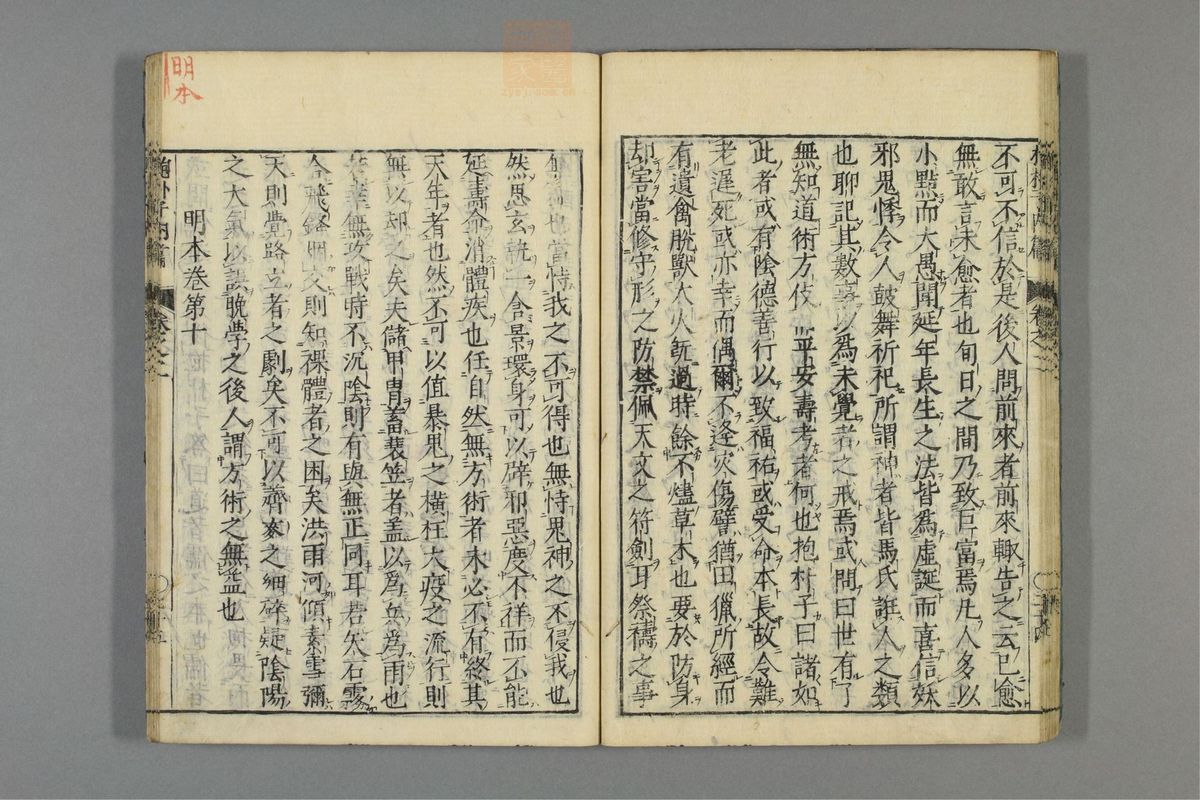 不可不信於是後人問前來者前來輙告之云已愈
無敢言未愈者也旬日之間乃致巨富焉凡人多以
小黠而大愚聞延年長生之法皆爲虛誕而喜信妖
邪鬼怪令人鼓舞祈祀所謂神者皆馬氏誑人之類
也聊記其數事以爲未覺者之戒焉或問曰世有了
無知道術方伎而平安壽考者何也抱朴子曰諸如
此者或有陰德善行以致福祐或受命本長故令難
老遲死或亦幸而偶爾不逢灾傷譬猶田獵所經而
有遺禽脫獸大火旣過時餘不燼草木也要於防身
却害當修守形之防禁佩天文之符劍耳祭禱之事
無益也當恃我之不可得也無恃鬼神之不侵我也
然思玄執一含景環身可以辟邪惡度不祥而不能
延壽命消體疾也任自然無方術者未必不有終其
天年者也然不可以值暴鬼之橫枉大疫之流行則
無以却之矣夫儲甲冑蓄蓑笠者盖以爲兵爲雨也
若幸無攻戰時不沉陰則有與無正同耳若矢石霧
合飛鋒烟交則知裸體者之困矣洪雨河傾素雪彌
天則覺路立者之劇矣不可以薺麥之細碎疑陰陽
之大氣以誤晚學之後人謂方術之無益也
明本卷第十
抱朴子内篇
明本